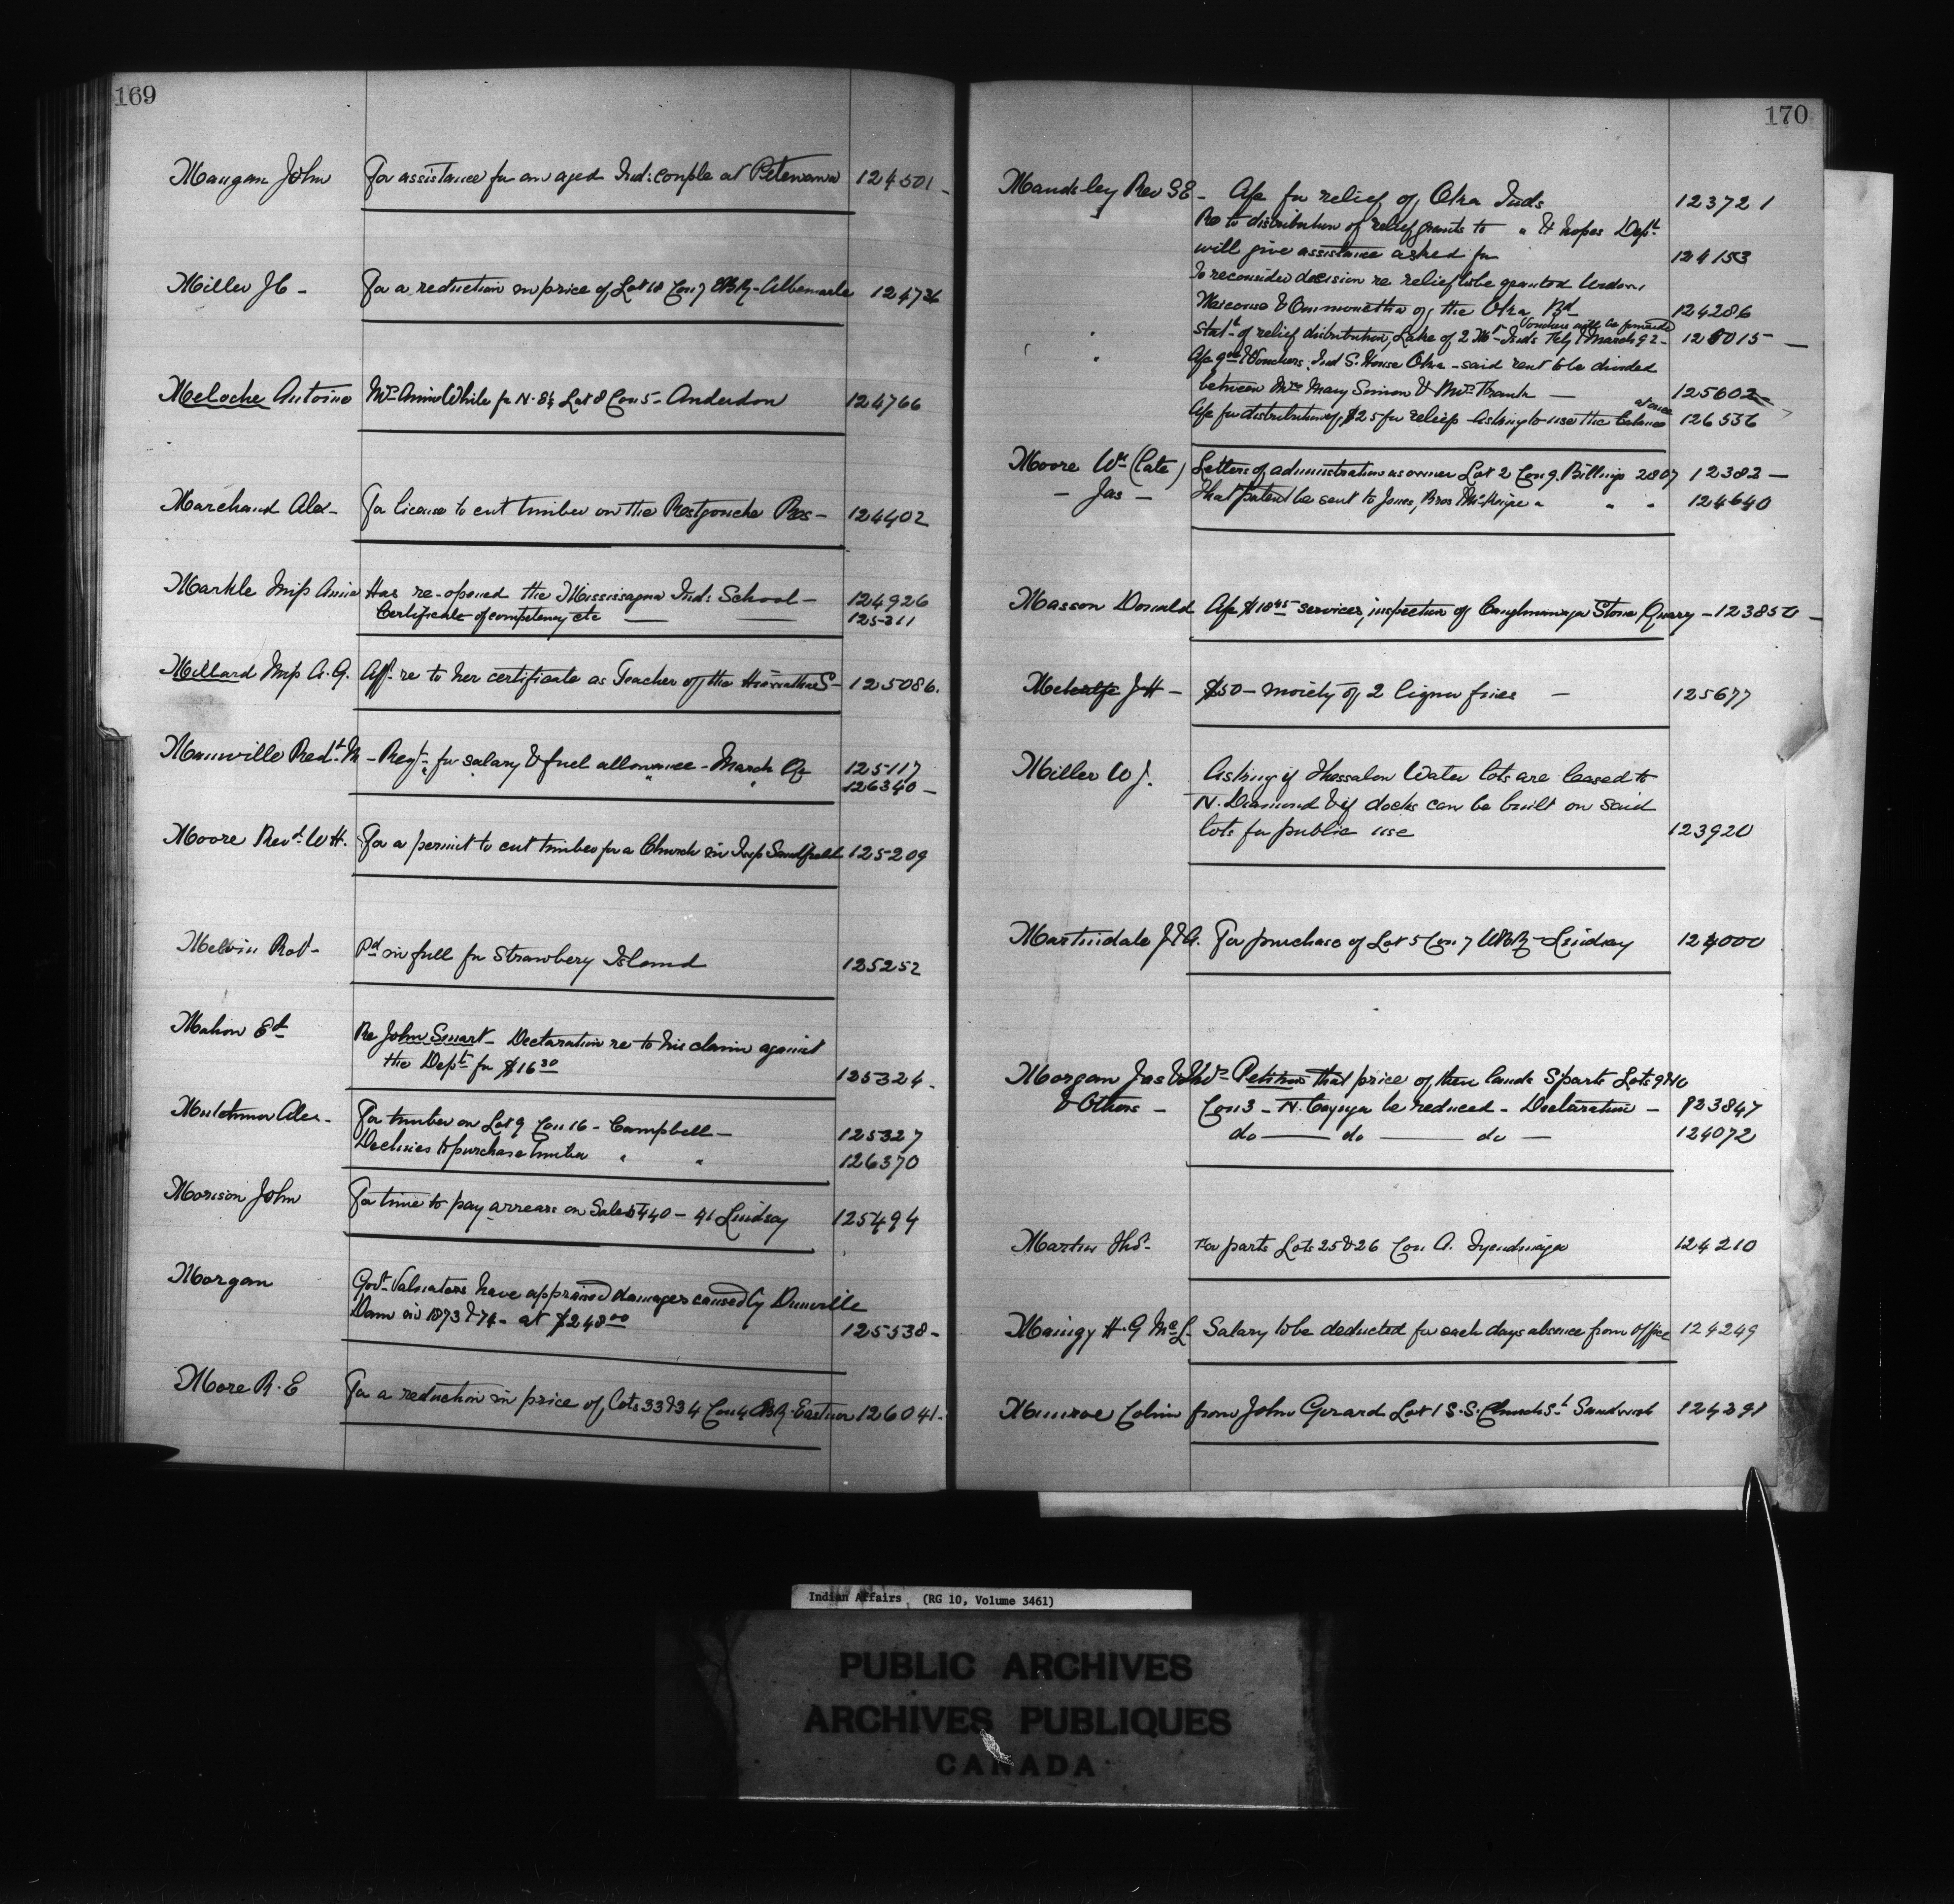 169
Mangan John For assistance for an aged Ind: couple at Petewawa 124501 -
Miller J C - For a reduction in price of Lot 18 Con 7 EBR - Albemarle 124726
Meloche Antoine Mrs Annie White for N. 8½ Lot 8 Con 5 - Anderdon 124766
Marchand Alex - For license to cut timber on the Restgouche Res - 124402
Markle Miss Annie Has re-opened the Mississagua Ind: School - 124926
Certificate of competency etc — — 125211
Millard Miss A. G. Aff. re to her certificate as Teacher of the S - 125086.
Manville Redt. M - Reqt. for salary & fuel allowance - March Qr 125117
" " 126340 -
Moore Revd. W H. For a permit to cut timber for a Church in Twp Sandfield 125209
Melvin Robt - Pd in full for Strawbery Island 125252
Mahon Ed Re John Smart - Declaration re to his claim against
the Dept for $16 30 125324 -
Mutchmor Alex - For timber on Lot 9 Con 16 - Campbell - 125327
Declines to purchase timber " " 126370
Morison John For time to pay arrears on Sale 5440 - 91 Lindsay 125494
Morgan Govt. Valuators have appraised damages caused by Dunville
Dam in 1873 & 74 - at $248 00 125538 -
More R. E For a reduction in price of Lots 33 & 34 Con 4 EBR. Eastnor 126041 -
170
Maudsley Rev S E - Ack for relief of Oka Inds 123721
Re to distribution of relief grants to " & hopes Dept.
will give assistance asked for 124153
To reconsider decision re relief to be granted
& of the Oka Bd 124286
Vouchers will be forwarded
Statt. of relief distribution, Lake of 2 Mts Inds Feby & March 92 - 125015 —
Ack Vouchers. Ind S. House Oka - said rent to be divided
between Mrs Mary Simon & Mrs Frank — 125602 -
at once
Ack for distribution of $25 for relief - Asking to use the balance 126556
Moore Wm (late) Letters of administration as owner Lot 2 Con 9. Billings 2807 12382 -
- Jas - That Patent be sent to Jones, Bros & " " " 124640
Masson Donald Ack $18 45 services, inspection of Caughnawaga Stone Quarry - 123850 -
Metcalfe J H - $50 - moiety of 2 liquor fines — 125677
Miller W J. Asking if Thessalon Water lots are leased to
N. Diamond & if docks can be built on said
lots for public use 123920
Martindale J & A. For purchase of Lot 5 Con 7 WBR - Lindsay 124000
Morgan Jas & Thos - Petition that price of their lands S parts Lots 9 & 10
& Others - Con 3 - N. Cayuga be reduced - Declaration - 123847
do — do — do — 124072
Martin Thos. For parts Lots 25 & 26 Con A. Tyendinaga 124210
Maingy H. G Mc L. Salary to be deducted for each days absence from Office 124249
Munroe Colin from John Gerard Lot 1 S. S. Church St Sandwich 124391
Indian Affairs (RG 10, Volume 3461)
PUBLIC ARCHIVES
ARCHIVES PUBLIQUES
CANADA